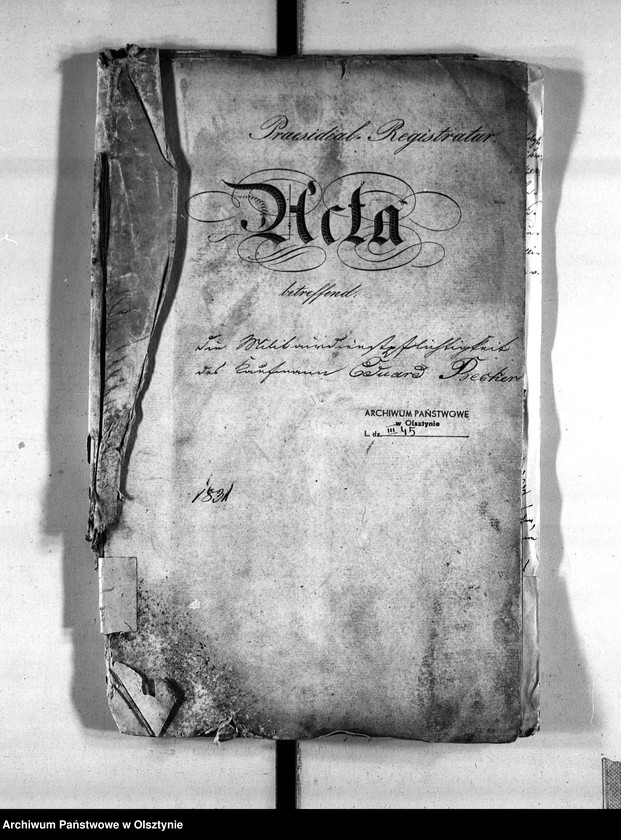 Praesidial-Registratur.
Acta
betreffend.
die Militairdienstpflichtigkeit
des Kaufmann Eduard Becker
ARCHIWUM PAŃSTWOWE
w Olsztynie
L. dz. III 45
1831
Archiwum Państwowe w Olsztynie